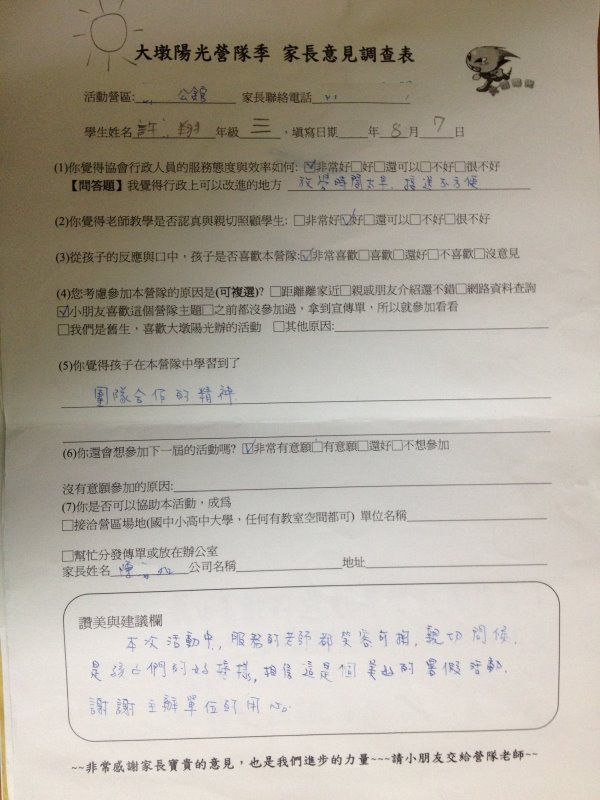 大墩陽光營隊季 家長意見調查表
活動營區: 公館 家長聯絡電話
學生姓名 許 翔 年級 三 ,填寫日期 年 8 月 7 日
(1)你覺得協會行政人員的服務態度與效率如何: ☑非常好□好□還可以□不好□很不好
【問答題】我覺得行政上可以改進的地方 放學時間太早,接送不方便
(2)你覺得老師教學是否認真與親切照顧學生: □非常好☑好□還可以□不好□很不好
(3)從孩子的反應與口中,孩子是否喜歡本營隊:☑非常喜歡□喜歡□還好□不喜歡□沒意見
(4)您考慮參加本營隊的原因是(可複選)? □距離離家近□親或朋友介紹還不錯□網路資料查詢
☑小朋友喜歡這個營隊主題□之前都沒參加過,拿到宣傳單,所以就參加看看
□我們是舊生,喜歡大墩陽光辦的活動 □其他原因:
(5)你覺得孩子在本營隊中學習到了
團隊合作的精神
(6)你還會想參加下一屆的活動嗎? ☑非常有意願□有意願□還好□不想參加
沒有意願參加的原因:
(7)你是否可以協助本活動,成為
□接洽營區場地(國中小高中大學,任何有教室空間都可) 單位名稱
□幫忙分發傳單或放在辦公室
家長姓名 陳 公司名稱 地址
讚美與建議欄
本次活動中,服務的老師都笑容可掬,親切問候,
是孩子們的好榜樣,相信這是個美好的暑假活動.
謝謝主辦單位的用心。
~~非常感謝家長寶貴的意見,也是我們進步的力量~~~請小朋友交給營隊老師~~